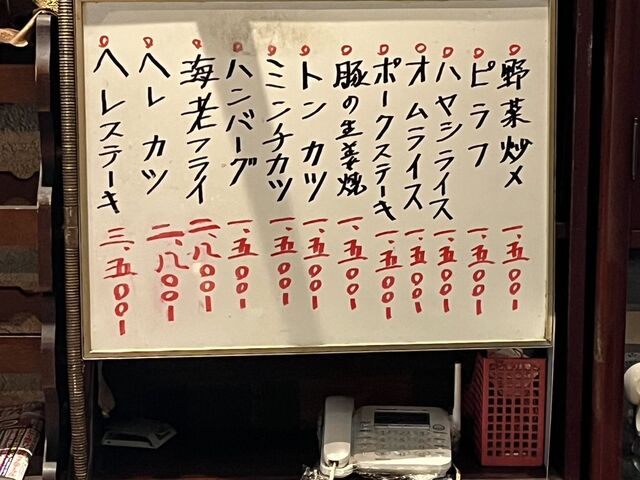 野菜炒メ 一、五〇〇ー
ピラフ 一、五〇〇ー
ハヤシライス 一、五〇〇ー
オムライス 一、五〇〇ー
ポークステーキ 一、五〇〇ー
豚の生姜焼 一、五〇〇ー
トンカツ 一、五〇〇ー
ミンチカツ 一、五〇〇ー
ハンバーグ 一、五〇〇ー
海老フライ 二、八〇〇ー
ヘレカツ 二、八〇〇ー
ヘレステーキ 三、五〇〇ー